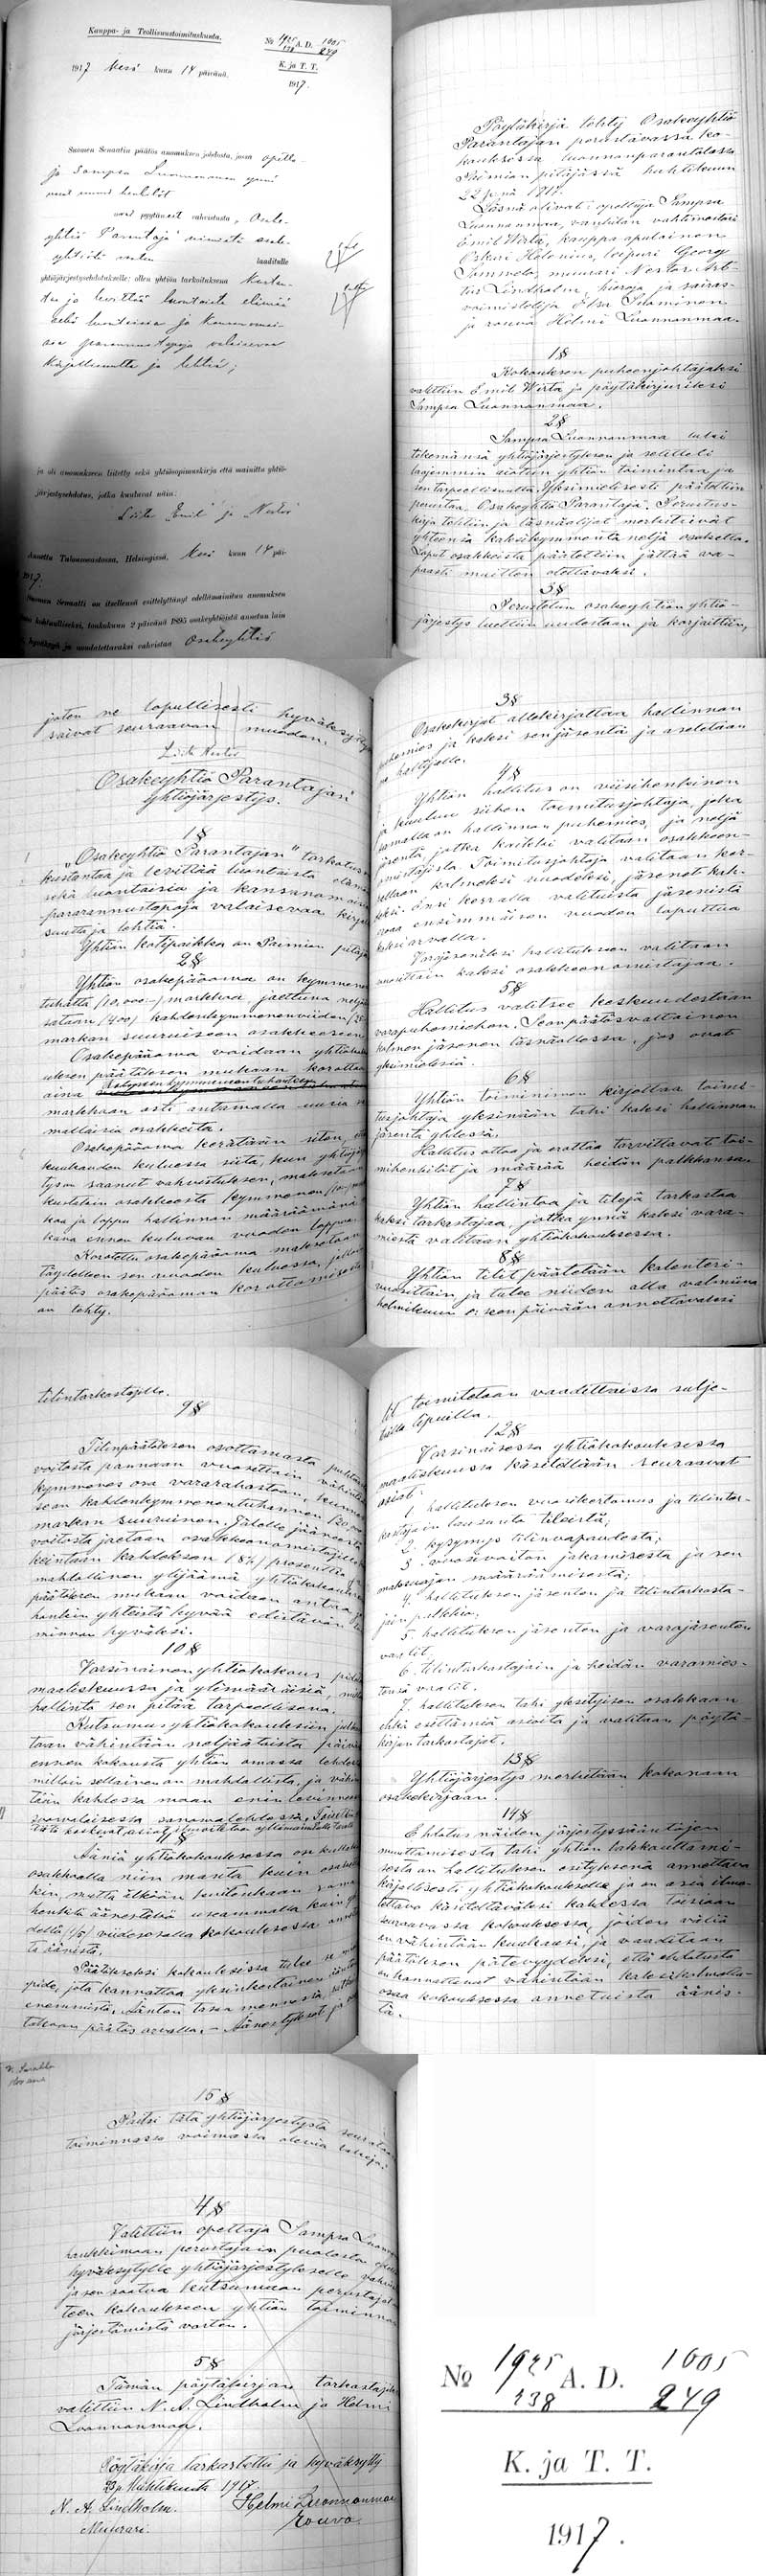 Kauppa- ja Teollisuustoimituskunta.
№ 1925 A. D. 1005
238 249
K. ja T. T.
1917.
1917 Kesä kuun 14 päivänä.
Suomen Senaatin päätös anomuksen johdosta, jossa opetta-
ja Sampsa Luonnonmaa ynnä
muut
ovat pyytäneet vahvistusta, Osake-
yhtiö Parantaja nimistä osake-
yhtiötä varten laaditulle
yhtiöjärjestysehdotukselle; ollen yhtiön tarkoituksena kustan-
taa ja levittää luontaista elämää
sekä luontaisia ja kansanomai-
sia parannustapoja valaisevaa
kirjallisuutta ja lehtiä;
ja oli anomukseen liitetty sekä yhtiösopimuskirja että mainittu yhtiö-
järjestysehdotus, jotka kuuluvat näin:
Liite Emil ja Neste
Annettu Talousosastossa, Helsingissä, Kesä kuun 14 päi-
1917.
Suomen Senaatti on itsellensä esittelyttänyt edellämainitun anomuksen
kohtuulliseksi, toukokuun 2 päivänä 1895 osakeyhtiöistä annetun lain
hyväksyä ja noudatettavaksi vahvistaa Osakeyhtiö
Pöytäkirja tehty Osakeyhtiö
Parantajan perustavassa ko-
kouksessa Luonnonparantolassa
Paimion pitäjässä huhtikuun
22 p:nä 1917.
Läsnä olivat: opettaja Sampsa
Luonnonmaa, vanhilan vahtimestari
Emil Wirta, kauppa apulainen
Oskari Helenius, leipuri Georg
Samwelo, muurari Nestor Art-
tur Lindholm, hieroja ja sairas-
voimistelija Elsa Suominen
ja rouva Helmi Luonnonmaa.
1§
Kokouksen puheenjohtajaksi
valittiin Emil Wirta ja pöytäkirjuriksi
Sampsa Luonnonmaa.
2§
Sampsa Luonnonmaa luki
tekemänsä yhtiöjärjestyksen ja selitteli
laajemmin aiotun yhtiön toimintaa ja
sen tarpeellisuutta. Yksimielisesti päätettiin
perustaa Osakeyhtiö Parantaja. Perustus-
kirja tehtiin ja läsnäolijat merkitsivät
yhteensä kaksikymmentä neljä osaketta.
Loput osakkeista päätettiin jättää va-
paasti muitten otettavaksi.
3§
Perustetun osakeyhtiön yhtiö-
järjestys luettiin uudestaan ja korjattiin,
joten ne lopullisesti hyväksyttyä
saivat seuraavan muodon.
Liite Neste
Osakeyhtiö Parantajan
yhtiöjärjestys.
1§
„Osakeyhtiö Parantajan" tarkoitus
kustantaa ja levittää luontaista elämää
sekä luontaisia ja kansanomaisia
parannustapoja valaisevaa kirjalli-
suutta ja lehtiä.
Yhtiön kotipaikka on Paimion pitäjä
2§
Yhtiön osakepääoma on kymmenen
tuhatta /10,000-/ markkaa, jaettuna neljään
sataan /400/ kahdenkymmenenviiden /25/
markan suuruiseen osakkeeseen
Osakepääoma voidaan yhtiökoko-
uksen päätöksen mukaan korottaa
aina
markkaan asti antamalla uusia
mallaisia osakkeita.
Osakepääoma kerätään siten, että
kuukauden kuluessa siitä, kun yhtiöjärjes-
tys on saanut vahvistuksen, maksetaan
kustakin osakkeesta kymmenen /10/ mark-
kaa ja loppu hallinnon määräämänä
aikana ennen kuluvan vuoden loppua.
Korotettu osakepääoma maksetaan
täydelleen sen vuoden kuluessa, jolloin
päätös osakepääoman korottamisesta
on tehty.
3§
Osakekirjat allekirjoittaa hallinnon
puhemies ja kaksi sen jäsentä ja asetetaan
ne haltijalle.
4§
Yhtiön hallitus on viisihenkinen
ja kuuluu siihen toimitusjohtaja, joka
samalla on hallinnon puhemies, ja neljä
jäsentä jotka kaikki valitaan osakkeen-
omistajista. Toimitusjohtaja valitaan ker-
rallaan kolmeksi vuodeksi, jäsenet kah-
deksi. Ensi kerralla valituista jäsenistä
eroaa ensimmäisen vuoden loputtua
kaksi arvalla.
Varajäseniksi hallitukseen valitaan
vuosittain kaksi osakkeenomistajaa.
5§
Hallitus valitsee keskuudestaan
varapuhemiehen. Se on päätösvaltainen
kolmen jäsenen läsnäollessa, jos ovat
yksimielisiä.
6§
Yhtiön toiminimen kirjoittaa toimi-
tusjohtaja yksinään tahi kaksi hallinnon
jäsentä yhdessä.
Hallitus ottaa ja erottaa tarvittavat toi-
mihenkilöt ja määrää heidän palkkansa.
7§
Yhtiön hallintoa ja tilejä tarkastaa
kaksi tarkastajaa, jotka ynnä kaksi vara-
miestä valitaan yhtiökokouksessa.
8§
Yhtiön tilit päätetään kalenteri-
vuosittain ja tulee niiden olla valmiina
helmikuun 15:een päivään annettavaksi
tilintarkastajille.
9§
Tilinpäätöksen osottamasta puhtaasta
voitosta pannaan vuosittain vähintäin
kymmenes osa vararahastoon, kunnes
sen kahdenkymmenentuhannen /20,000/
markan suuruinen. Jälelle jääneestä
voitosta jaetaan osakkeenomistajille
korkeintaan kahdeksan (8%) prosenttia
mahdollinen ylijäämä yhtiökokouksen
päätöksen mukaan voidaan antaa
honkin yhteistä hyvää edistävän toi-
minnan hyväksi.
10§
Varsinainen yhtiökokous pidetään
maaliskuussa ja ylimääräisiä, milloin
hallinto sen pitää tarpeellisena.
Kutsumus yhtiökokouksiin julais-
taan vähintään neljätoista päivää
ennen kokousta yhtiön omassa lehdessä
milloin sellainen on mahdollista, ja vähin-
tään kahdessa maan enin levinneessä
suomalaisessa sanomalehdessä.
11§
Ääniä yhtiökokouksessa on kullakin
osakkaalla niin monta kuin osaket-
kin, mutta älköön kuitenkaan sama
henkilö äänestäkö useammalla kuin yh-
dellä /1/5/ viidesosalla kokouksessa annet-
tu äänistä.
Päätökseksi kokouksissa tulee se mieli-
pide, jota kannattaa yksinkertainen äänten
enemmistö. Äänten tasan mennessä, ratkais-
taan päätös arvalla. – Äänestykset ja vaa-
lit toimitetaan vaadittaissa sulje-
tuilla lipuilla.
12§
Varsinaisessa yhtiökokouksessa
maaliskuussa käsitellään seuraavat
asiat:
1. hallituksen vuosikertomus ja tilintar-
kastajain lausunto tileistä;
2. kysymys tilinvapaudesta;
3. vuosivoiton jakamisesta ja sen
maksuajan määräämisestä;
4. hallituksen jäsenten ja tilintarkasta-
jain palkkio;
5. hallituksen jäsenten ja varajäsenten
vaalit.
6. tilintarkastajain ja heidän varamies-
tensä vaalit.
7. hallituksen tahi yksityisen osakkaan
ehkä esittämiä asioita ja valitaan pöytä-
kirjan tarkastajat.
13§
Yhtiöjärjestys merkitään kokonaan
osakekirjaan.
14§
Ehdotus näiden järjestyssääntöjen
muuttamisesta tahi yhtiön lakkauttami-
sesta on hallituksen esityksenä annettava
kirjallisesti yhtiökokoukselle ja on asia ilmo-
tettava käsiteltäväksi kahdessa toisiaan
seuraavassa kokouksessa, joiden väliä
on vähintään kuukausi, ja vaaditaan
päätöksen pätevyydeksi, että ehdotusta
on kannattanut vähintään kaksi kolmatta-
osaa kokouksessa annetuista äänis-
tä.
15§
Paitsi tätä yhtiöjärjestystä seurataan
toiminnassa voimassa olevia lakeja.
4§
Valittiin opettaja Sampsa Luonnon-
hankkimaan perustajain puolesta
hyväksytylle yhtiöjärjestykselle vahvis-
ja sen saatua kutsumaan perustajat
teen kokoukseen yhtiön toiminnan
järjestämistä varten.
5§
Tämän pöytäkirjan tarkastajiksi
valittiin N. A. Lindholm ja Helmi
Luonnonmaa.
Pöytäkirja tarkastettu ja hyväksytty
23 p. Huhtikuuta 1917.
N. A. Lindholm. Helmi Luonnonmaa
Muurari. Rouva.
№ 1925 A. D. 1005
238 249
K. ja T. T.
1917.